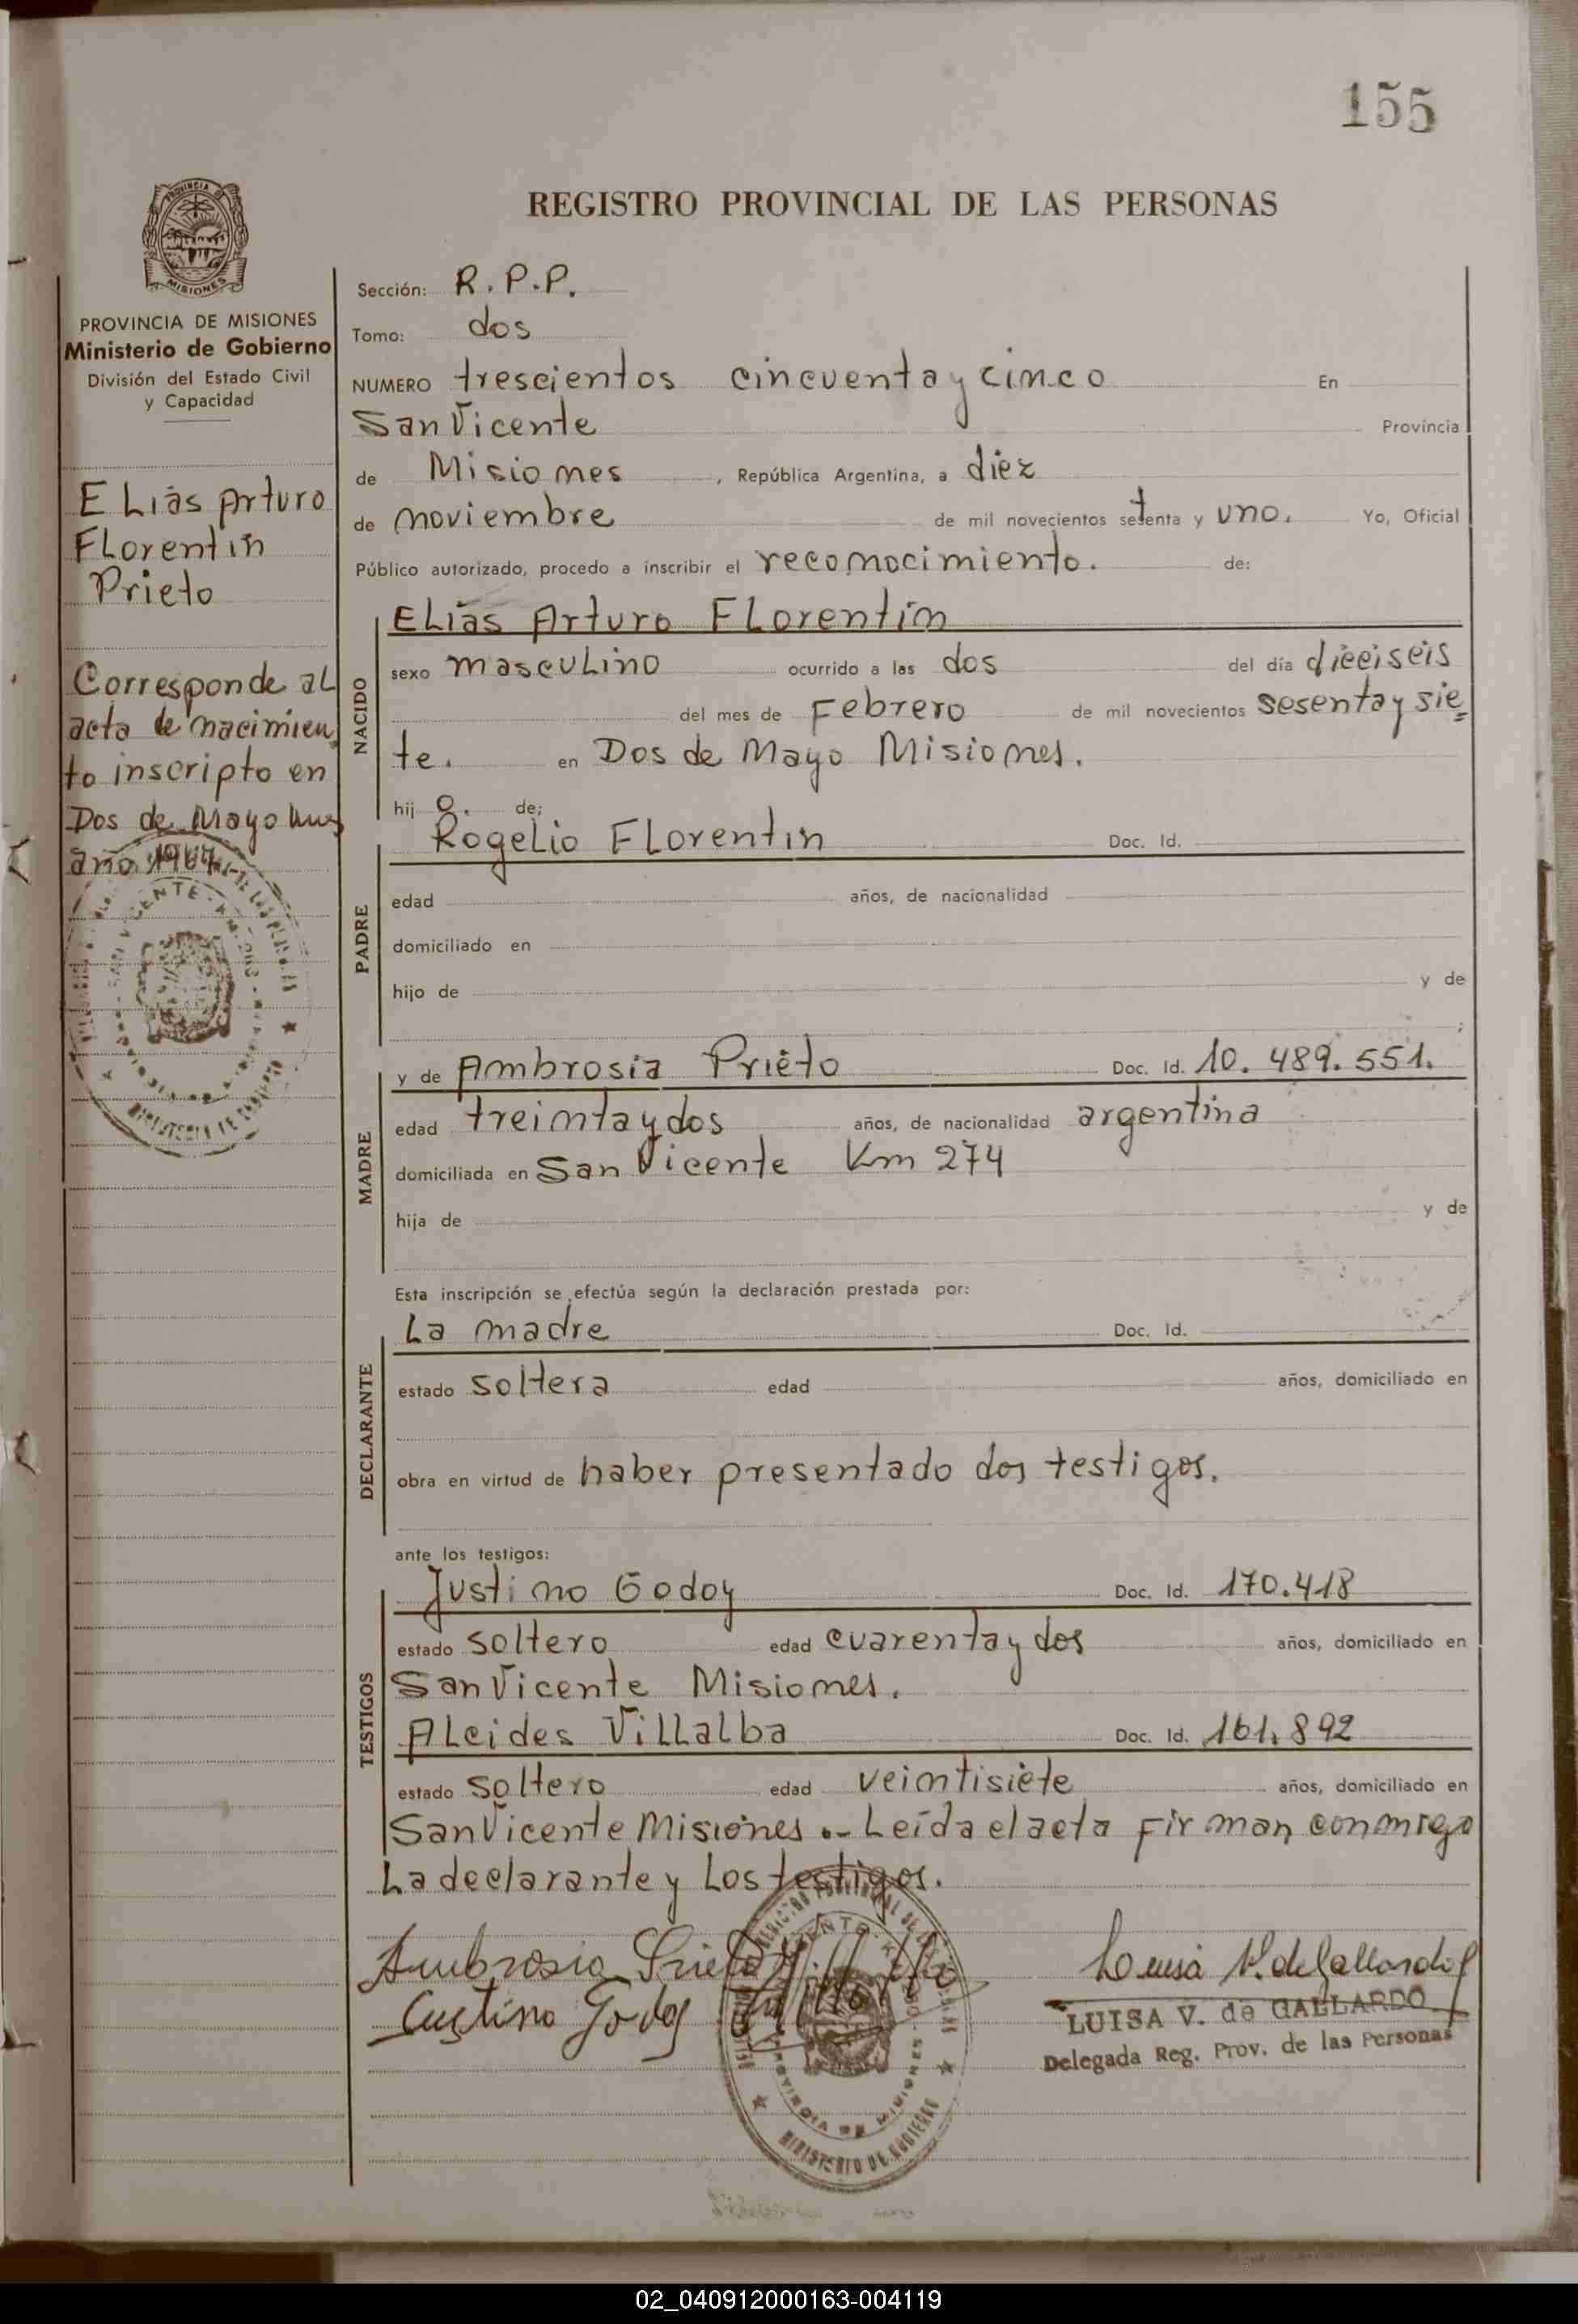 155
REGISTRO PROVINCIAL DE LAS PERSONAS
PROVINCIA DE MISIONES
Ministerio de Gobierno
División del Estado Civil
y Capacidad
ELías Arturo
FLorentin
Prieto
Corresponde aL
acta de nacimien
to inscripto en
Dos de Mayo Mnes
año 1967
Sección: R.P.P.
Tomo: dos
NUMERO trescientos cincuenta y cinco En
San Vicente Provincia
de Misiones, República Argentina, a diez
de noviembre de mil novecientos setenta y uno. Yo, Oficial
Público autorizado, procedo a inscribir el reconocimiento. de:
NACIDO
ELías Arturo FLorentin
sexo mascuLino ocurrido a las dos del día dieciseis
del mes de Febrero de mil novecientos sesenta y sie
te. en Dos de Mayo Misiones.
hij o. de;
PADRE
RogeLio FLorentin Doc. Id.
edad años, de nacionalidad
domiciliado en
hijo de y de
;
MADRE
y de Ambrosia Prieto Doc. Id. 10.489.551.
edad treinta y dos años, de nacionalidad argentina
domiciliada en San Vicente Km 274
hija de y de
Esta inscripción se efectúa según la declaración prestada por:
DECLARANTE
La madre Doc. Id.
estado soltera edad años, domiciliado en
obra en virtud de haber presentado dos testigos.
ante los testigos:
TESTIGOS
Justino Godoy Doc. Id. 170.418
estado soltero edad cuarenta y dos años, domiciliado en
San Vicente Misiones.
ALcides ViLLalba Doc. Id. 161.892
estado soltero edad veintisiete años, domiciliado en
San Vicente Misiones.- Leída el acta Firman conmigo
La declarante y Los testigos.
Ambrosia Prieto Villalba
Custino Godoy
Luisa V. de Gallardo
LUISA V. de GALLARDO
Delegada Reg. Prov. de las Personas
PROVINCIA DE MISIONES
MINISTERIO DE GOBIERNO
02_040912000163-004119